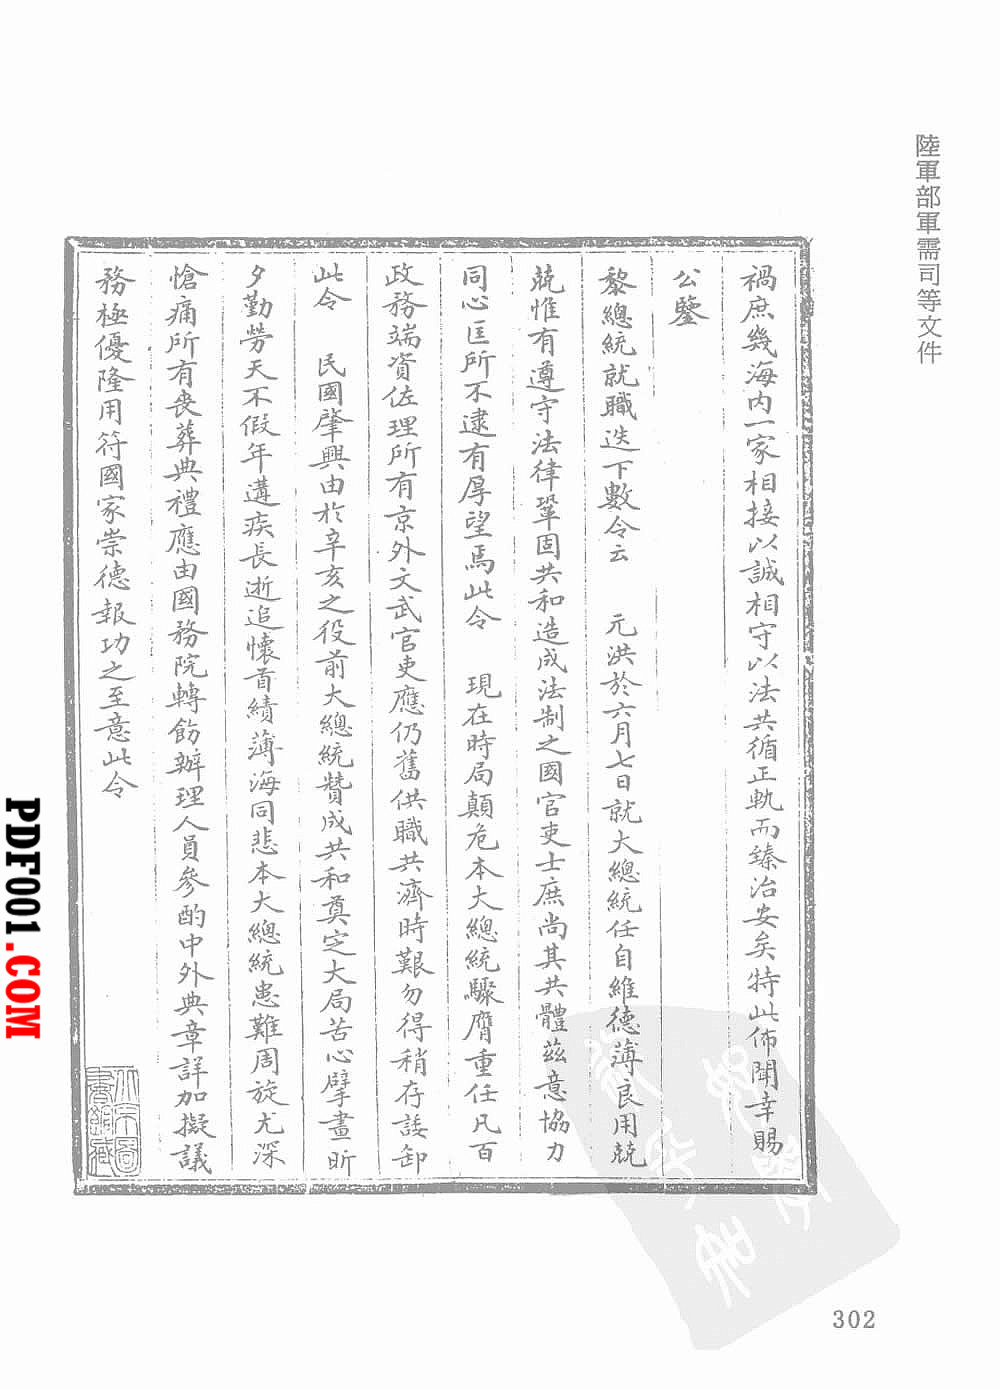 陸軍部軍需司等文件
禍庶幾海内一家相接以誠相守以法共循正軌而臻治安矣特此佈聞幸賜
公鑒
黎總統就職迭下數令云　元洪於六月七日就大總統任自維德薄良用兢
兢惟有遵守法律鞏固共和造成法制之國官吏士庶尚其共體茲意協力
同心匡所不逮有厚望焉此令　現在時局顛危本大總統驟膺重任凡百
政務端資佐理所有京外文武官吏應仍舊供職共濟時艱勿得稍存諉卸
此令　民國肇興由於辛亥之役前大總統贊成共和奠定大局苦心擘畫昕
夕勤勞天不假年遘疾長逝追懷首績薄海同悲本大總統患難周旋尤深
愴痛所有喪葬典禮應由國務院轉飭辦理人員參酌中外典章詳加擬議
務極優隆用符國家崇德報功之至意此令
302
PDF001.COM